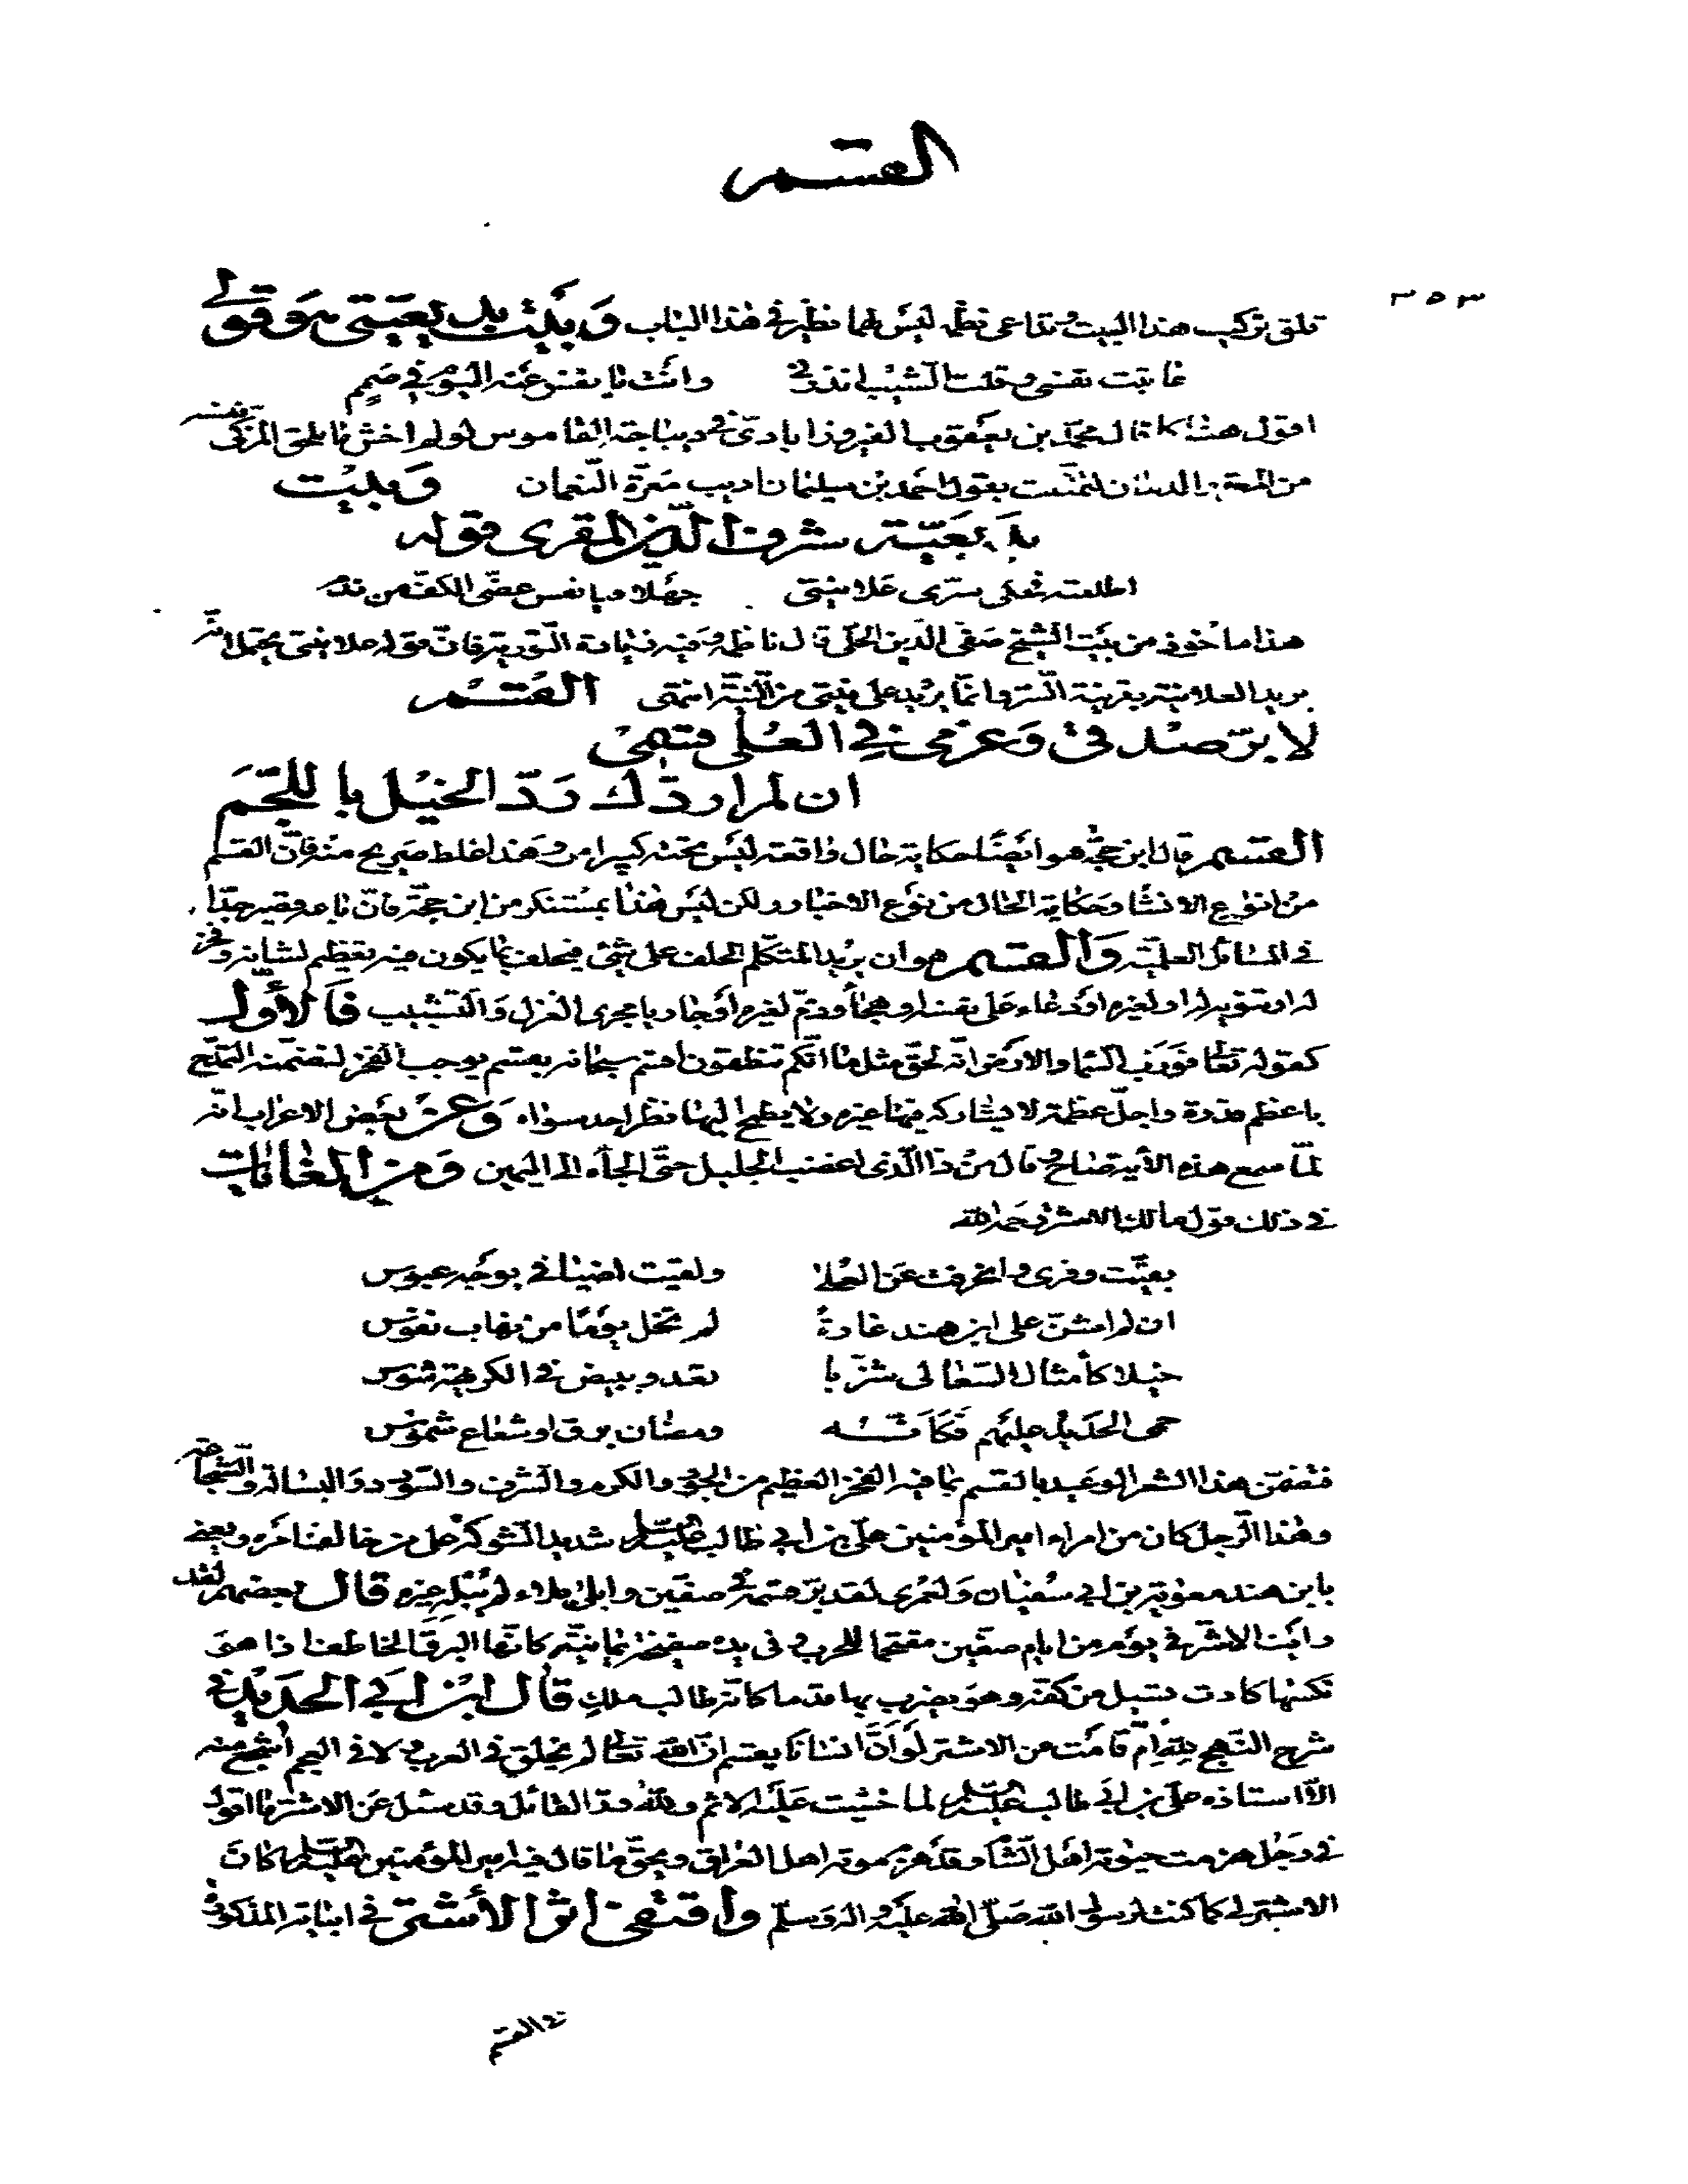 القسم
٣٥٣
قلق تركيب هذا البيت وتداعى نظمه ليس لهما نظير في هذا الباب وبيت بديعيتي هو قولي
عاتبت نفسي وقلت الشيب انذرني وانت يا نفس عنه اليوم في صمم
اقول هنا كما قال محمد بن يعقوب الفيروزابادي في ديباجة القاموس لولم اخش ما يلحق المزكى نفسه
من المعرة والدمان لتمثلت بقول احمد بن سليمان اديب معرة النعمان وبيت
بديعية شرف الدين المقري قوله
اطلعته ثم على سرى علانيتي جهلا ويا نفس عضى الكف من ندم
هذا مأخوذ من بيت الشيخ صفي الدين الحلي قال ناظمه وفيه زيادة التورية فان قوله علانيتي يحتمل انه
يريد العلانية بقرينة السر وانما يريد على نيتي من النية انتهى القسم
لا بر صدقي وعزمي في العلى قسمي
ان لم اردك رد الخيل باللجم
القسم قال ابن حجة هو ايضا حكاية حال واقعة ليس تحته كبير امر وهذا غلط صريح منه فان القسم
من انواع الانشا وحكاية الحال من نوع الاخبار ولكن ليس هذا بمستنكر من ابن حجة فان باعه قصير جدا
في المسائل العلمية والقسم هو ان يريد المتكلم الحلف على شئ فيحلف بما يكون فيه تعظيم لشانه وفخر
له او تنويه له او لغيره او دعاء على نفسه او هجأ وذم لغيره او جاريا مجرى الغزل والتشبيب فالاول
كقوله تعالى فورب السماء والارض انه لحق مثل ما انكم تنطقون اقسم سبحانه بقسم يوجب الفخر لتضمنه التمدح
باعظم قدرة واجل عظمة لا يشاركه فيها غيره ولا يطمح اليها نظر احد سواه وعن بعض الاعراب انه
لما سمع هذه الأية صاح وقال من ذا الذي اغضب الجليل حتى الجأه الى اليمين ومن الغايات
في ذلك قول مالك الاشتر رحمه الله
بقيت وفري وانحرفت عن العلى ولقيت اضيافي بوجه عبوس
ان لم اشن على ابن هند غارة لم تخل يوما من نهاب نفوس
خيلا كأمثال السعالى شزبا تعدو ببيض في الكريهة شوس
حمى الحديد عليهم فكانه ومضان برق او شعاع شموس
فتضمن هذا الشعر الوعيد بالقسم بما فيه الفخر العظيم من الجود والكرم والشرف والسودد والبسالة والشجاعة
وهذا الرجل كان من امراء امير المؤمنين علي بن ابي طالب عليه السلام شديد الشوكة على من خالف امره ويعني
بابن هند معوية بن ابي سفيان ولعمري لقد بر قسمه في صفين وابلى بلاء لم يبله غيره قال بعضهم لقد
رايت الاشتر في يوم من ايام صفين مقتحما للحرب وفي يده صفيحة يمانية كانها البرق الخاطف اذا هو
نكسها كادت تسيل من كفه وهو يضرب بها قدما كانه طالب ملك قال ابن ابي الحديد في
شرح النهج لله ام قامت عن الاشتر لو ان انسانا يقسم ان الله تعالى لم يخلق في العرب ولا في العجم اشجع منه
الا استاذه علي بن ابي طالب عليه السلام لما خشيت عليه الاثم ولله در القائل وقد سئل عن الاشتر ما اقول
في رجل هزمت حيوته اهل الشام وقد هزم موته اهل العراق وبحق ما قال فيه امير المؤمنين عليه السلام كان
الاشتر لي كما كنت لرسول الله صلى الله عليه واله وسلم واقتفى اثر الأشتر في ابياته المذكورة
في القسم